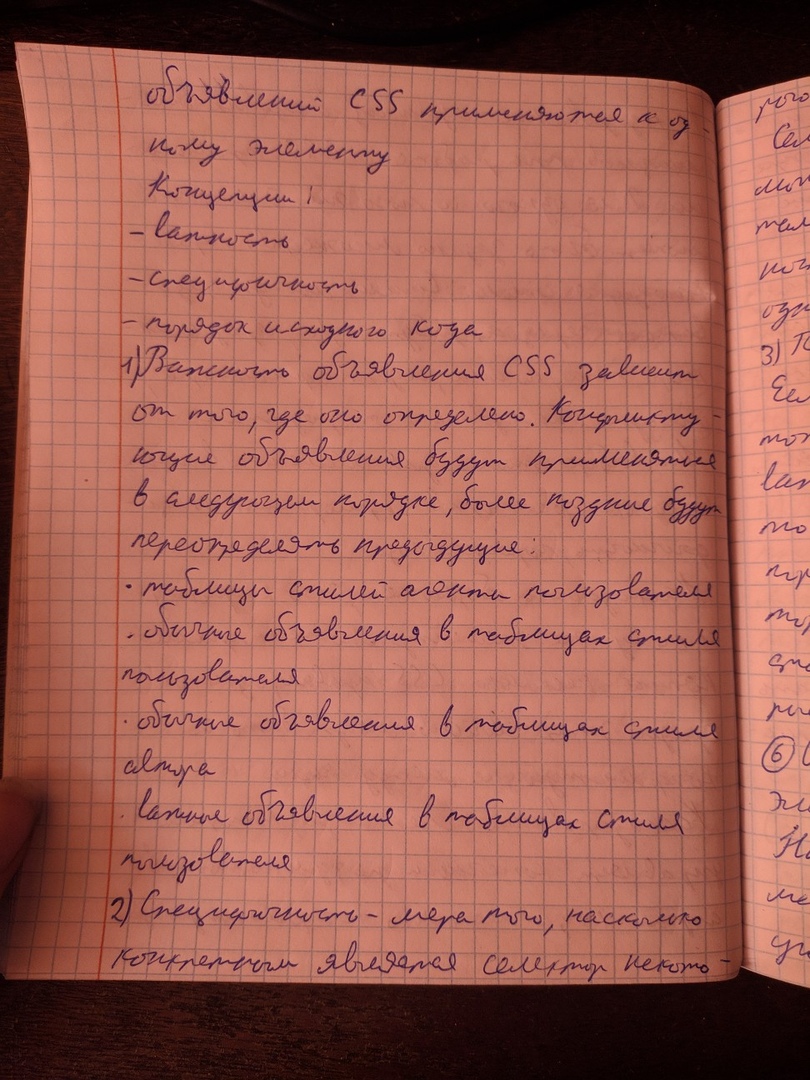 объявлений CSS применяются к од-
ному элементу
Концепции:
- важность
- специфичность
- порядок исходного кода
1) Важность объявления CSS зависит
от того, где оно определено. Конфликту-
ющие объявления будут применяться
в следующем порядке, более поздние будут
переопределять предыдущие:
· таблицы стилей агента пользователя
· обычные объявления в таблицах стиля
пользователя
· обычные объявления в таблицах стиля
автора
· важные объявления в таблицах стиля
пользователя
2) Специфичность - мера того, насколько
конкретным является селектор некото-
3)
6